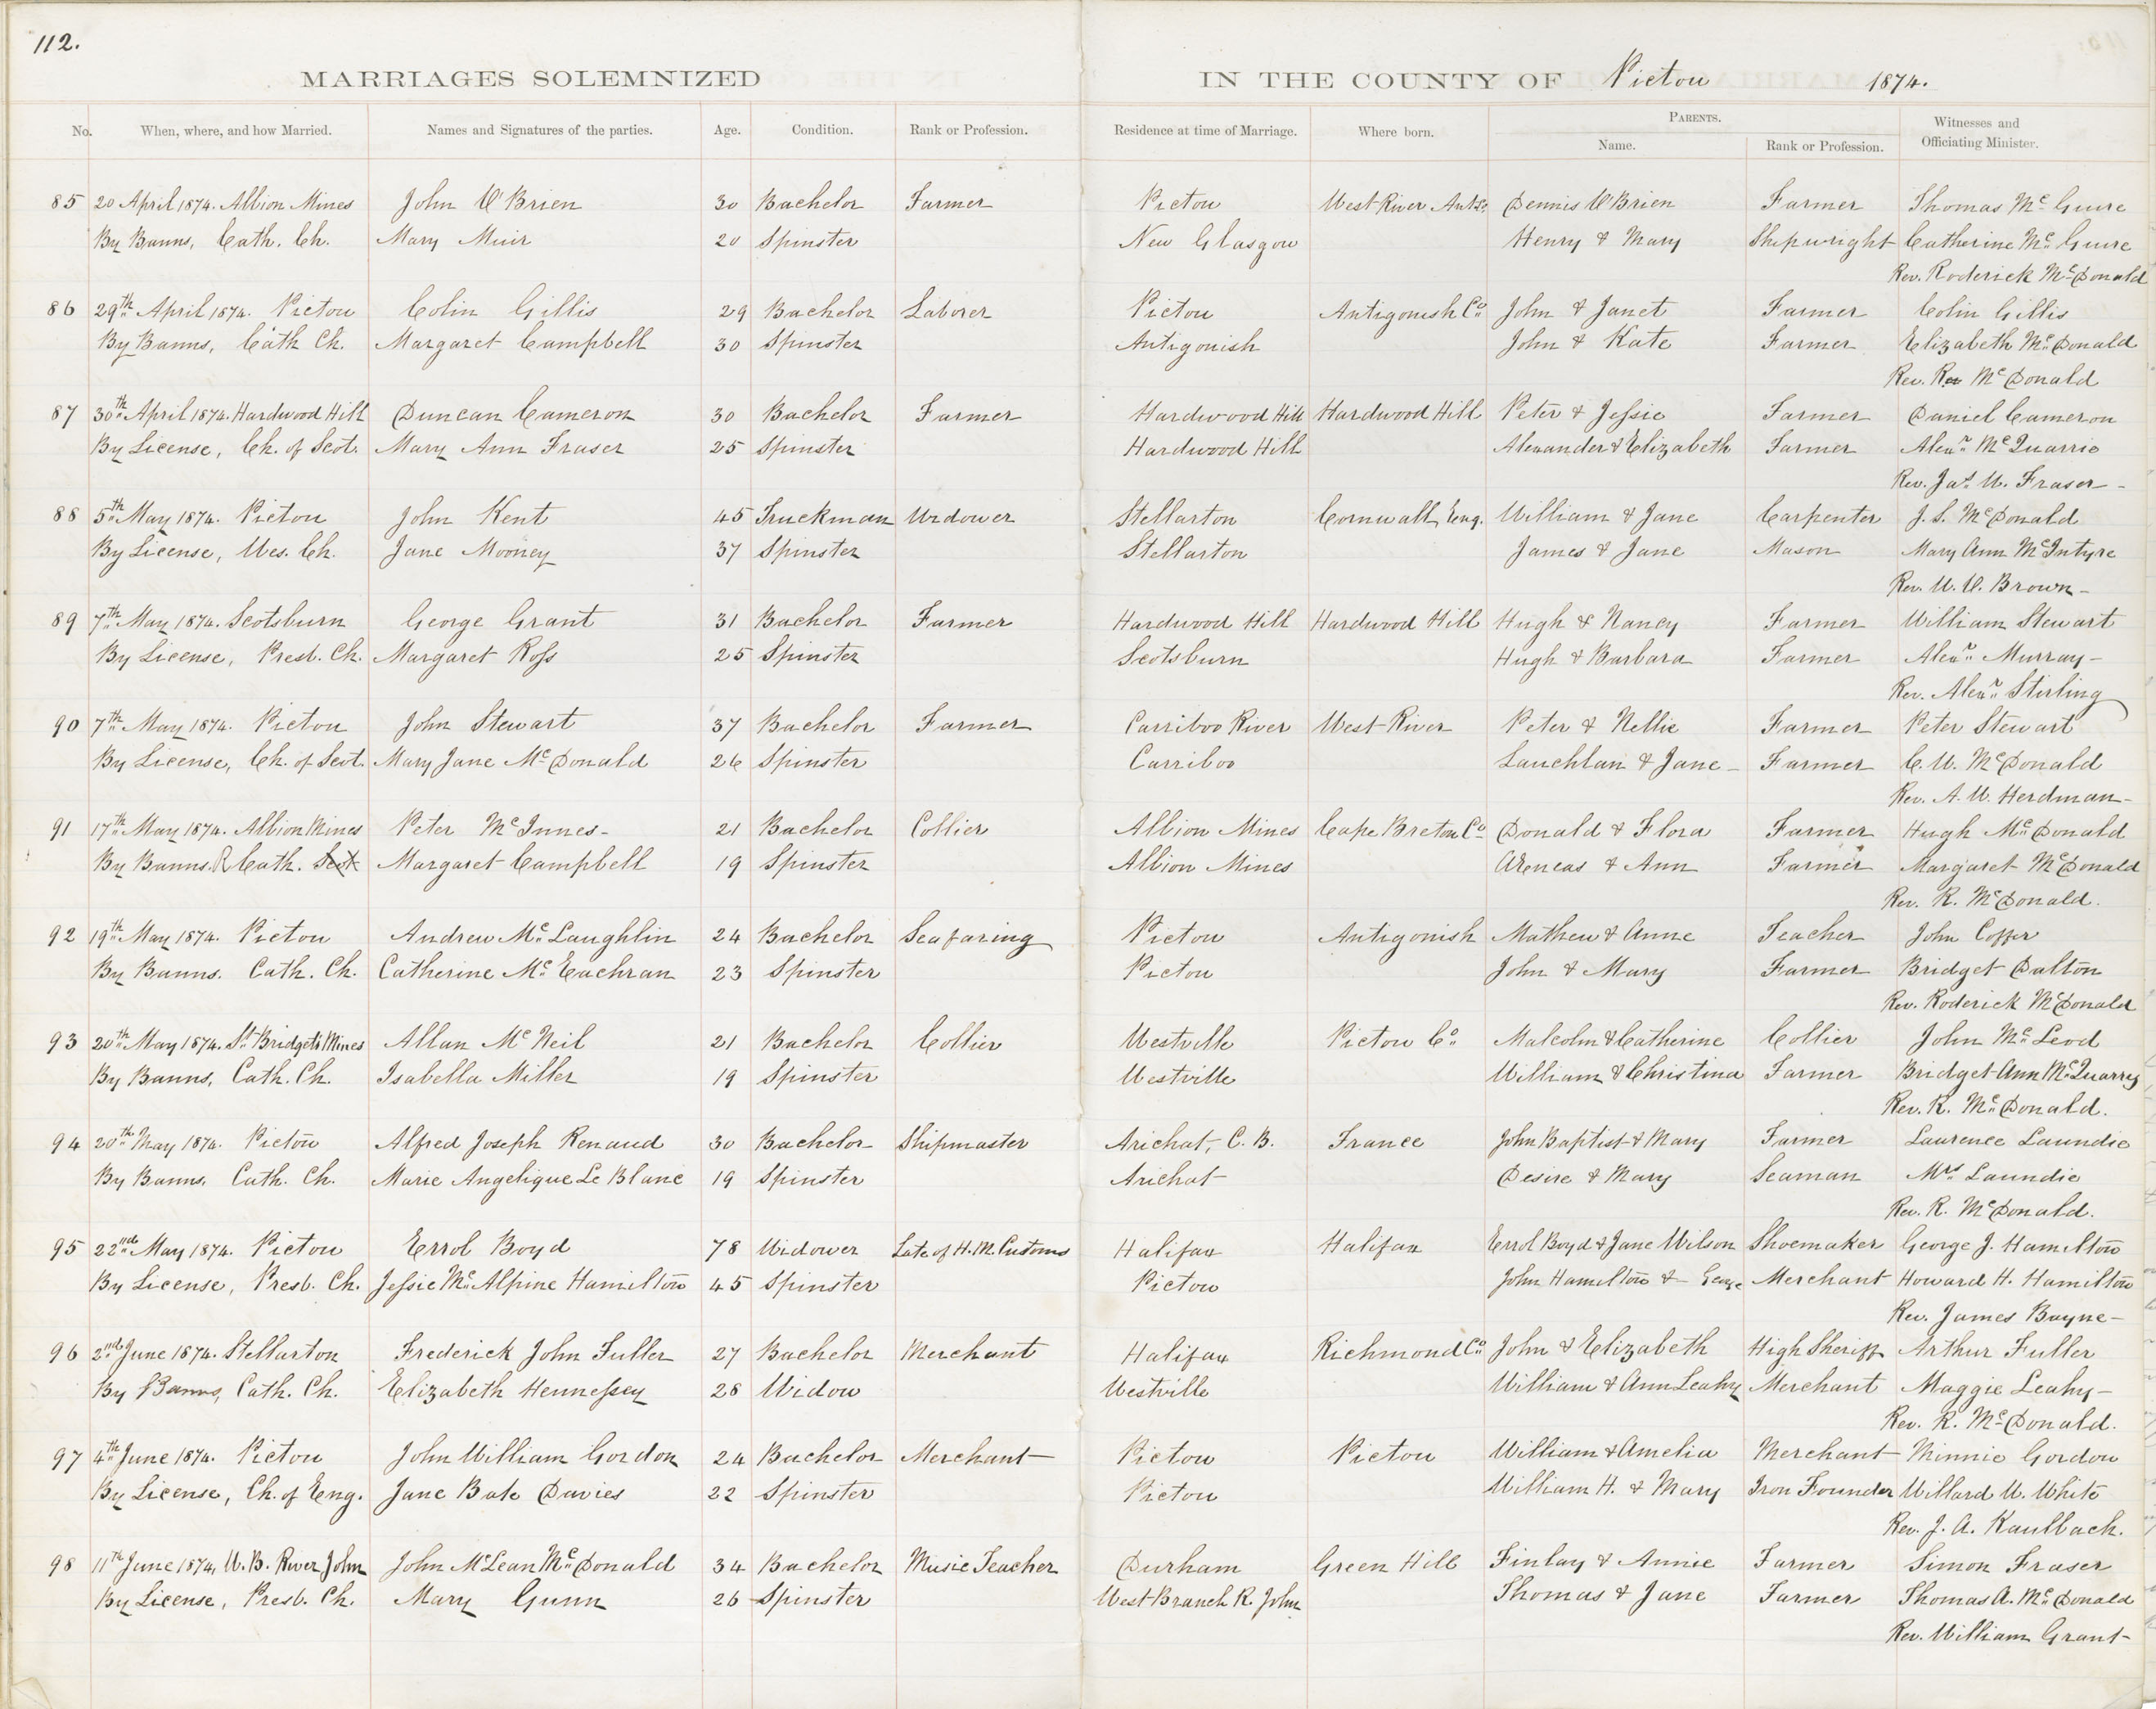 112.
MARRIAGES SOLEMNIZED IN THE COUNTY OF Pictou 1874.
No. When, where, and how Married. Names and Signatures of the parties. Age. Condition. Rank or Profession. Residence at time of Marriage. Where born. PARENTS. Name. Rank or Profession. Witnesses and Officiating Minister.
85 20 April 1874. Albion Mines John O'Brien 30 Bachelor Farmer Pictou West River Dennis O'Brien Farmer Thomas Mc Guire
By Banns, Cath. Ch. Mary Muir 20 Spinster New Glasgow Henry & Mary Shipwright Catherine Mc Guire
Rev. Roderick McDonald
86 29th April 1874. Pictou Colin Gillis 29 Bachelor Laborer Pictou Antigonish Co John & Janet Farmer Colin Gillis
By Banns, Cath Ch. Margaret Campbell 30 Spinster Antigonish John & Kate Farmer Elizabeth McDonald
Rev. McDonald
87 30th April 1874. Hardwood Hill Duncan Cameron 30 Bachelor Farmer Hardwood Hill Hardwood Hill Peter & Jessie Farmer Daniel Cameron
By License, Ch. of Scot. Mary Ann Fraser 25 Spinster Hardwood Hill Alexander & Elizabeth Farmer Alexr McQuarrie
Rev. Jas. W. Fraser
88 5th May 1874. Pictou John Kent 45 Truckman Widower Stellarton Cornwall, Eng. William & Jane Carpenter J. S. McDonald
By License, Wes. Ch. Jane Mooney 37 Spinster Stellarton James & Jane Mason Mary Ann McIntyre
Rev. W. C. Brown
89 7th May 1874. Scotsburn George Grant 31 Bachelor Farmer Hardwood Hill Hardwood Hill Hugh & Nancy Farmer William Stewart
By License, Presb. Ch. Margaret Ross 25 Spinster Scotsburn Hugh & Barbara Farmer Alexr Murray
Rev. Alexr Stirling
90 7th May 1874. Pictou John Stewart 37 Bachelor Farmer Carriboo River West River Peter & Nellie Farmer Peter Stewart
By License, Ch. of Scot. Mary Jane McDonald 26 Spinster Carriboo Lauchlan & Jane Farmer C. W. McDonald
Rev. A. W. Herdman
91 17th May 1874. Albion Mines Peter McInnes 21 Bachelor Collier Albion Mines Cape Breton Co Donald & Flora Farmer Hugh McDonald
By Banns. R Cath. Scot Margaret Campbell 19 Spinster Albion Mines Aeneas & Ann Farmer Margaret McDonald
Rev. R. McDonald.
92 19th May 1874. Pictou Andrew McLaughlin 24 Bachelor Seafaring Pictou Antigonish Mathew & Anne Teacher John
By Banns. Cath. Ch. Catherine McEachran 23 Spinster Pictou John & Mary Farmer Bridget Dalton
Rev. Roderick McDonald
93 20th May 1874. St Bridget's Mines Allan McNeil 21 Bachelor Collier Westville Pictou Co. Malcolm & Catherine Collier John McLeod
By Banns, Cath. Ch. Isabella Miller 19 Spinster Westville William & Christina Farmer Bridget Ann McQuarry
Rev. R. McDonald.
94 20th May 1874. Pictou Alfred Joseph Renaud 30 Bachelor Shipmaster Arichat, C. B. France John Baptist & Mary Farmer Laurence Laundie
By Banns. Cath. Ch. Marie Angelique Le Blanc 19 Spinster Arichat Desire & Mary Seaman Mrs Laundie
Rev. R. McDonald.
95 22nd May 1874. Pictou Errol Boyd 78 Widower Late of H.M. Customs Halifax Halifax Errol Boyd & Jane Wilson Shoemaker George J. Hamilton
By License, Presb. Ch. Jessie McAlpine Hamilton 45 Spinster Pictou John Hamilton & Merchant Howard H. Hamilton
Rev. James Bayne
96 2nd June 1874. Stellarton Frederick John Fuller 27 Bachelor Merchant Halifax Richmond Co. John & Elizabeth High Sheriff Arthur Fuller
By Banns, Cath. Ch. Elizabeth Hennessey 28 Widow Westville William & Ann Leahy Merchant Maggie Leahy
Rev. R. McDonald.
97 4th June 1874. Pictou John William Gordon 24 Bachelor Merchant Pictou Pictou William & Amelia Merchant Minnie Gordon
By License, Ch. of Eng. Jane Bate Davies 22 Spinster Pictou William H. & Mary Iron Founder Willard W. White
Rev. J. A. Kaulback.
98 11th June 1874, W. B. River John John McLean McDonald 34 Bachelor Music Teacher Durham Green Hill Finlay & Annie Farmer Simon Fraser
By License, Presb. Ch. Mary Gunn 26 Spinster West Branch R. John Thomas & Jane Farmer Thomas A. McDonald
Rev. William Grant